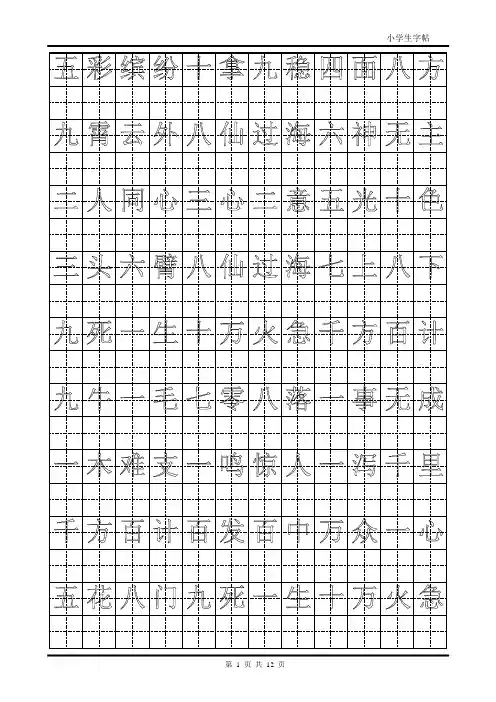 小学生字帖
五彩缤纷十拿九稳四面八方
九霄云外八仙过海六神无主
二人同心三心二意五光十色
三头六臂八仙过海七上八下
九死一生十万火急千方百计
九牛一毛七零八落一事无成
一木难支一鸣惊人一泻千里
千方百计百发百中万众一心
五花八门九死一生十万火急
第 1 页 共 12 页